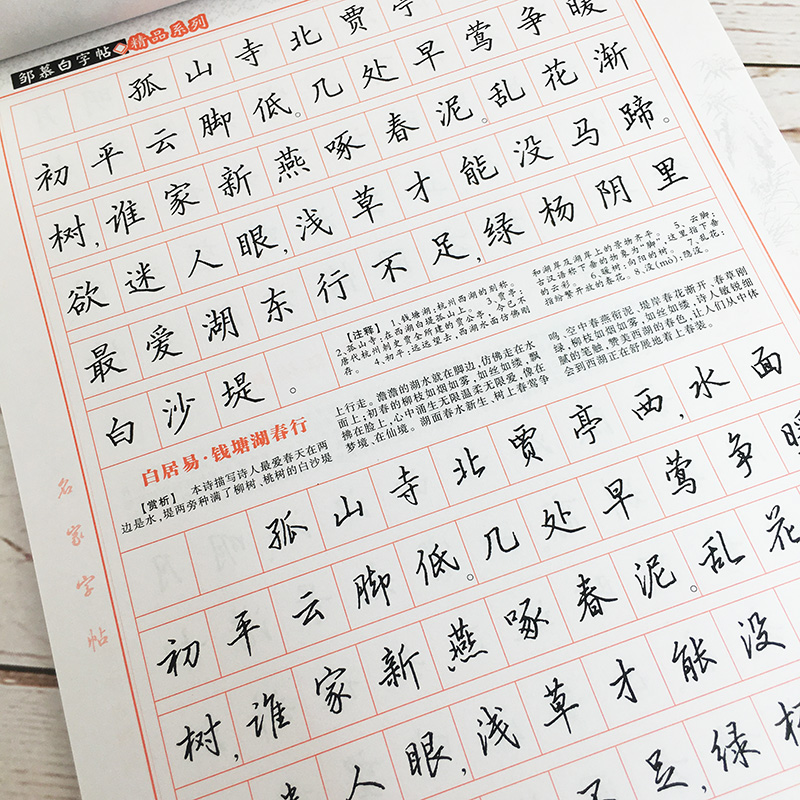 邹慕白字帖 精品系列
孤山寺北贾亭
初平云脚低。几处早莺争暖
树，谁家新燕啄春泥。乱花渐
欲迷人眼，浅草才能没马蹄。
最爱湖东行不足，绿杨阴里
白沙堤。
【注释】 1、钱塘湖：杭州西湖的别称。
2、孤山寺：在西湖白堤孤山上。 3、贾亭：
唐代杭州刺史贾全所建的贾公亭，今已不
存。 4、初平：远远望去，西湖水面仿佛刚
和湖岸及湖岸上的景物齐平。 5、云脚：
古汉语称下垂的物象为“脚”，这里指下垂
的云彩。 6、暖树：向阳的树。 7、乱花：
指纷繁开放的春花。 8、没(mò)：隐没。
白居易·钱塘湖春行
【赏析】 本诗描写诗人最爱春天在两
边是水，堤两旁种满了柳树、桃树的白沙堤
上行走。澹澹的湖水就在脚边，仿佛走在水
面上，初春的柳枝如烟如雾，如丝如缕，飘
拂在脸上，心中涌生无限温柔无限爱，像在
梦境、在仙境。湖面春水新生、树上春莺争
鸣、空中春燕衔泥、堤岸春花渐开、春草刚
绿，柳枝如烟如雾，如丝如缕，诗人敏锐细
腻的笔触，赞美西湖的春色，让人们从中体
会到西湖正在舒展地着上春装。
孤山寺北贾亭西，水面
初平云脚低。几处早莺争暖
树，谁家新燕啄春泥。乱花
人眼，浅草才能没
足，绿杨
名家字帖